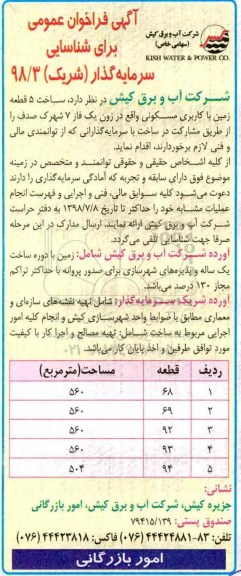 شرکت آب و برق کیش
(سهامی خاص)
KISH WATER & POWER CO.
آگهی فراخوان عمومی
برای شناسایی
سرمایه‌گذار (شریک) ۹۸/۳
شرکت آب و برق کیش در نظر دارد، ساخت ۵ قطعه
زمین با کاربری مسکونی واقع در زون یک فاز ۷ شهرک صدف را
از طریق مشارکت در ساخت با سرمایه‌گذارانی که از توانمندی مالی
و فنی لازم برخوردارند، اقدام نماید.
از کلیه اشخاص حقیقی و حقوقی توانمند و متخصص در زمینه
موضوع فوق دارای سابقه و تجربه که آمادگی سرمایه‌گذاری را دارند
دعوت می‌شود کلیه سوابق مالی، فنی و اجرایی و فهرست انجام
عملیات مشابه خود را حداکثر تا تاریخ ۱۳۹۸/۷/۸ به دفتر حراست
شرکت آب و برق کیش ارائه نمایند. ارسال مدارک در این مرحله
صرفا جهت شناسایی تلقی می‌گردد.
آورده شرکت آب و برق کیش شامل: زمین با دوره ساخت
یک ساله و پذیره‌های شهرسازی برای صدور پروانه با حداکثر تراکم
مجاز ۱۳۰ درصد می‌باشد.
آورده شریک سرمایه‌گذار: شامل تهیه نقشه‌های سازه‌ای و
معماری مطابق با ضوابط واحد شهرسازی کیش و انجام کلیه امور
اجرایی مربوط به ساخت شامل: تهیه مصالح و اجرا کار با کیفیت
مورد توافق طرفین و اخذ پایان کار می‌باشد.
ردیف قطعه مساحت(مترمربع)
۱ ۶۸ ۵۶۰
۲ ۶۹ ۵۶۰
۳ ۹۲ ۵۶۰
۴ ۹۳ ۵۶۰
۵ ۹۴ ۵۰۴
نشانی:
جزیره کیش، شرکت آب و برق کیش، امور بازرگانی
صندوق پستی: ۷۹۴۱۵/۱۳۹
تلفن: ۸۳-۴۴۴۲۴۸۸۱ (۰۷۶) فاکس: ۴۴۴۲۳۸۱۸ (۰۷۶)
امور بازرگانی